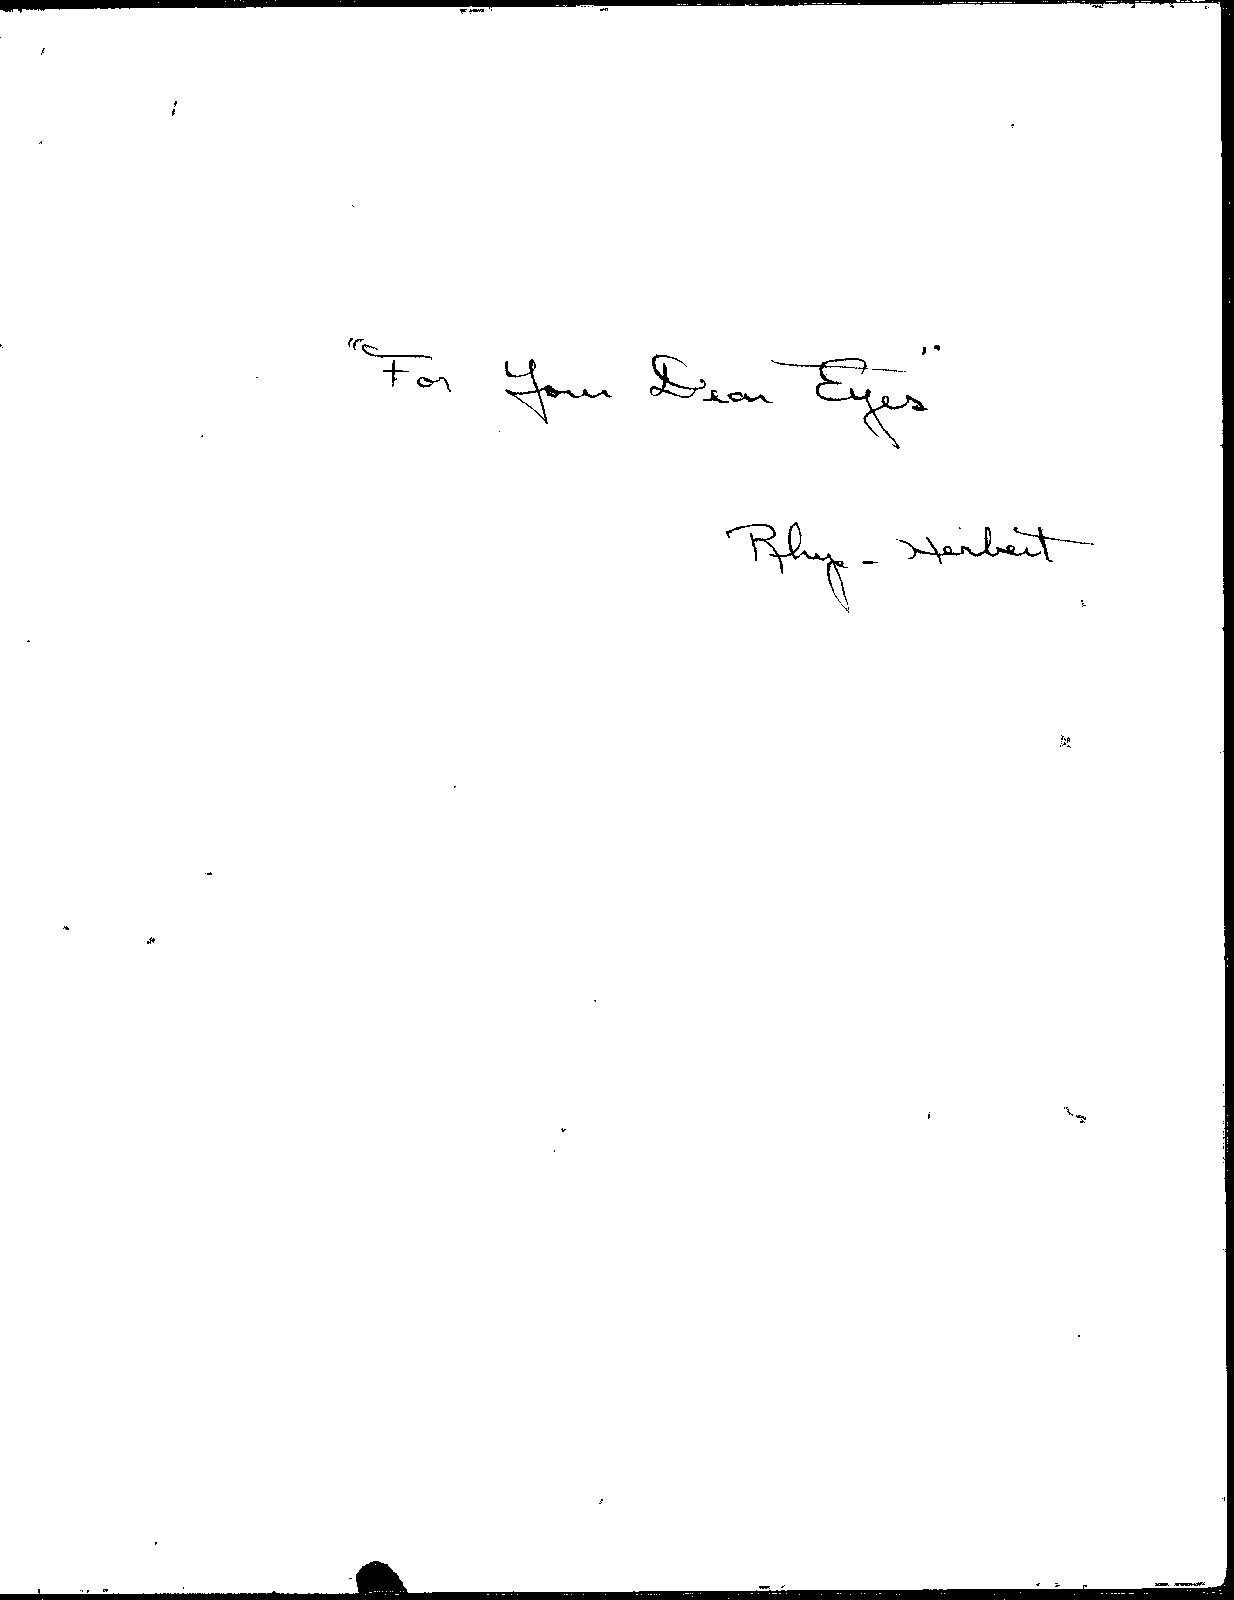 "For Your Dear Eyes"
Rhys - Herbert